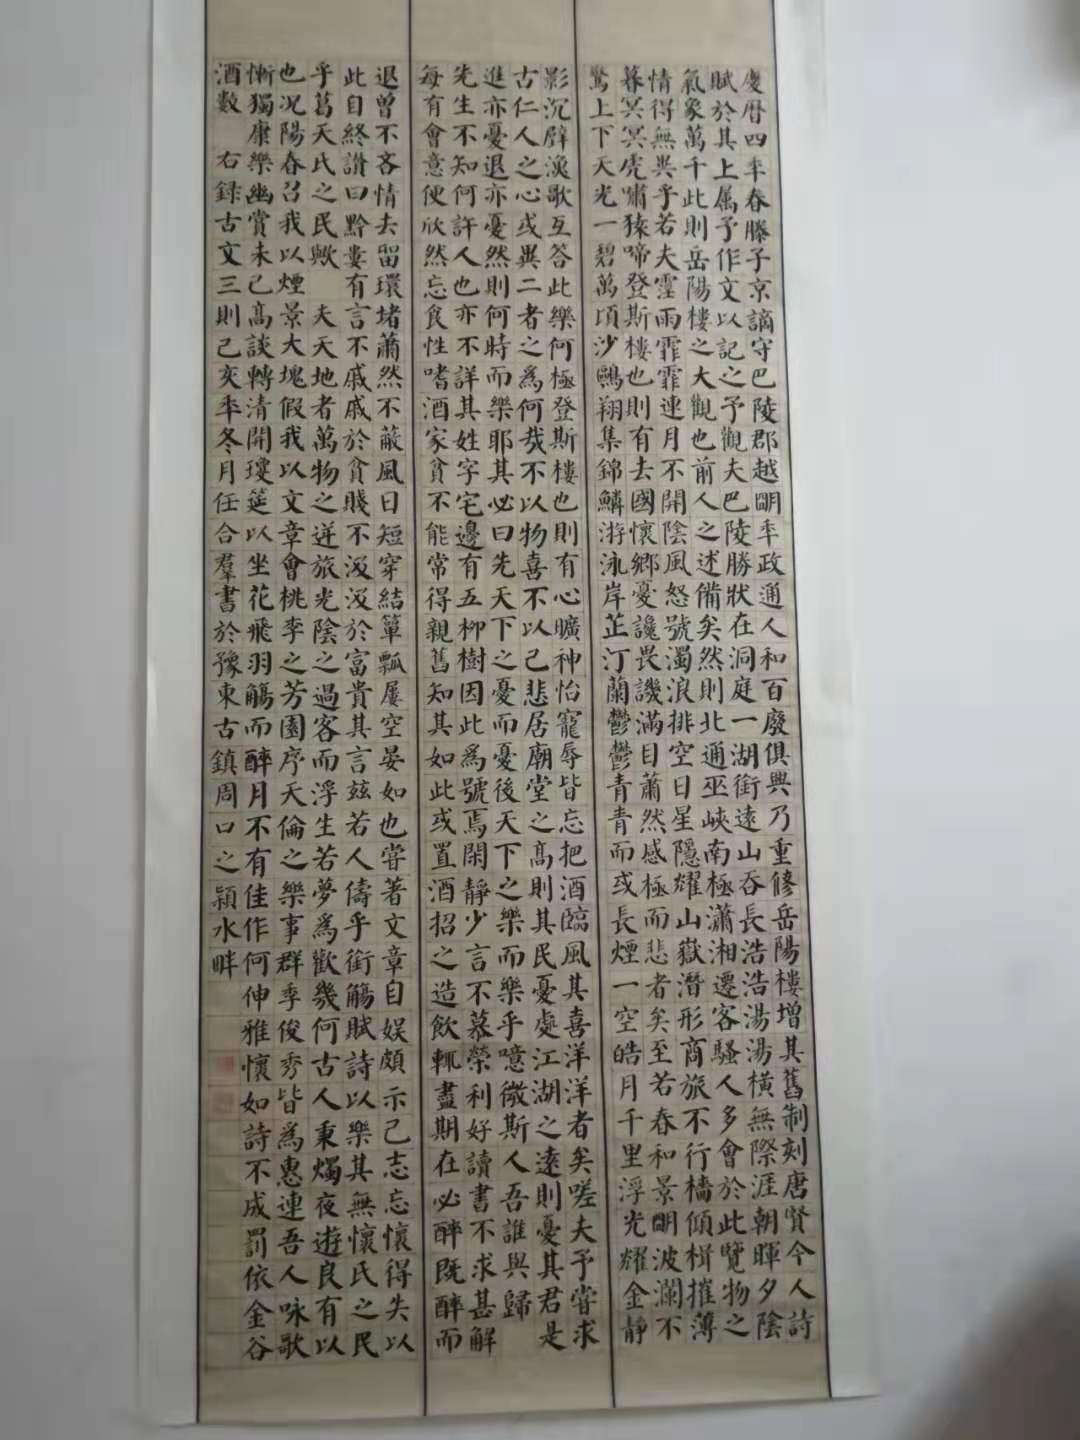 慶曆四年春滕子京謫守巴陵郡越明年政通人和百廢俱興乃重修岳陽樓增其舊制刻唐賢今人詩
賦於其上属予作文以記之予觀夫巴陵勝狀在洞庭一湖銜遠山吞長浩浩湯湯橫無際涯朝暉夕陰
氣象萬千此則岳陽樓之大觀也前人之述備矣然則北通巫峽南極瀟湘遷客騷人多會於此覽物之
情得無異乎若夫霪雨霏霏連月不開陰風怒號濁浪排空日星隱耀山嶽潛形商旅不行檣傾楫摧薄
暮冥冥虎嘯猿啼登斯樓也則有去國懷鄉憂讒畏譏滿目蕭然感極而悲者矣至若春和景明波瀾不
驚上下天光一碧萬頃沙鷗翔集錦鱗游泳岸芷汀蘭鬱鬱青青而或長煙一空皓月千里浮光耀金靜
影沉璧漁歌互答此樂何極登斯樓也則有心曠神怡寵辱皆忘把酒臨風其喜洋洋者矣嗟夫予嘗求
古仁人之心或異二者之為何哉不以物喜不以己悲居廟堂之高則其民憂處江湖之遠則憂其君是
進亦憂退亦憂然則何時而樂耶其必曰先天下之憂而憂後天下之樂而樂乎噫微斯人吾誰與歸
先生不知何許人也亦不詳其姓字宅邊有五柳樹因此為號焉閑靜少言不慕榮利好讀書不求甚解
每有會意便欣然忘食性嗜酒家貧不能常得親舊知其如此或置酒招之造飲輒盡期在必醉既醉而
退曾不吝情去留環堵蕭然不蔽風日短穿結簞瓢屢空晏如也嘗著文章自娛頗示己志忘懷得失以
此自終讚曰黔婁有言不戚戚於貧賤不汲汲於富貴其言茲若人儔乎銜觴賦詩以樂其無懷氏之民
乎葛天氏之民歟 夫天地者萬物之逆旅光陰之過客而浮生若夢為歡幾何古人秉燭夜遊良有以
也況陽春召我以煙景大塊假我以文章會桃李之芳園序天倫之樂事群季俊秀皆為惠連吾人咏歌
慚獨康樂幽賞未已高談轉清開瓊筵以坐花飛羽觴而醉月不有佳作何伸雅懷如詩不成罰依金谷
酒數 右録古文三則己亥年冬月任合羣書於豫東古鎮周口之潁水畔